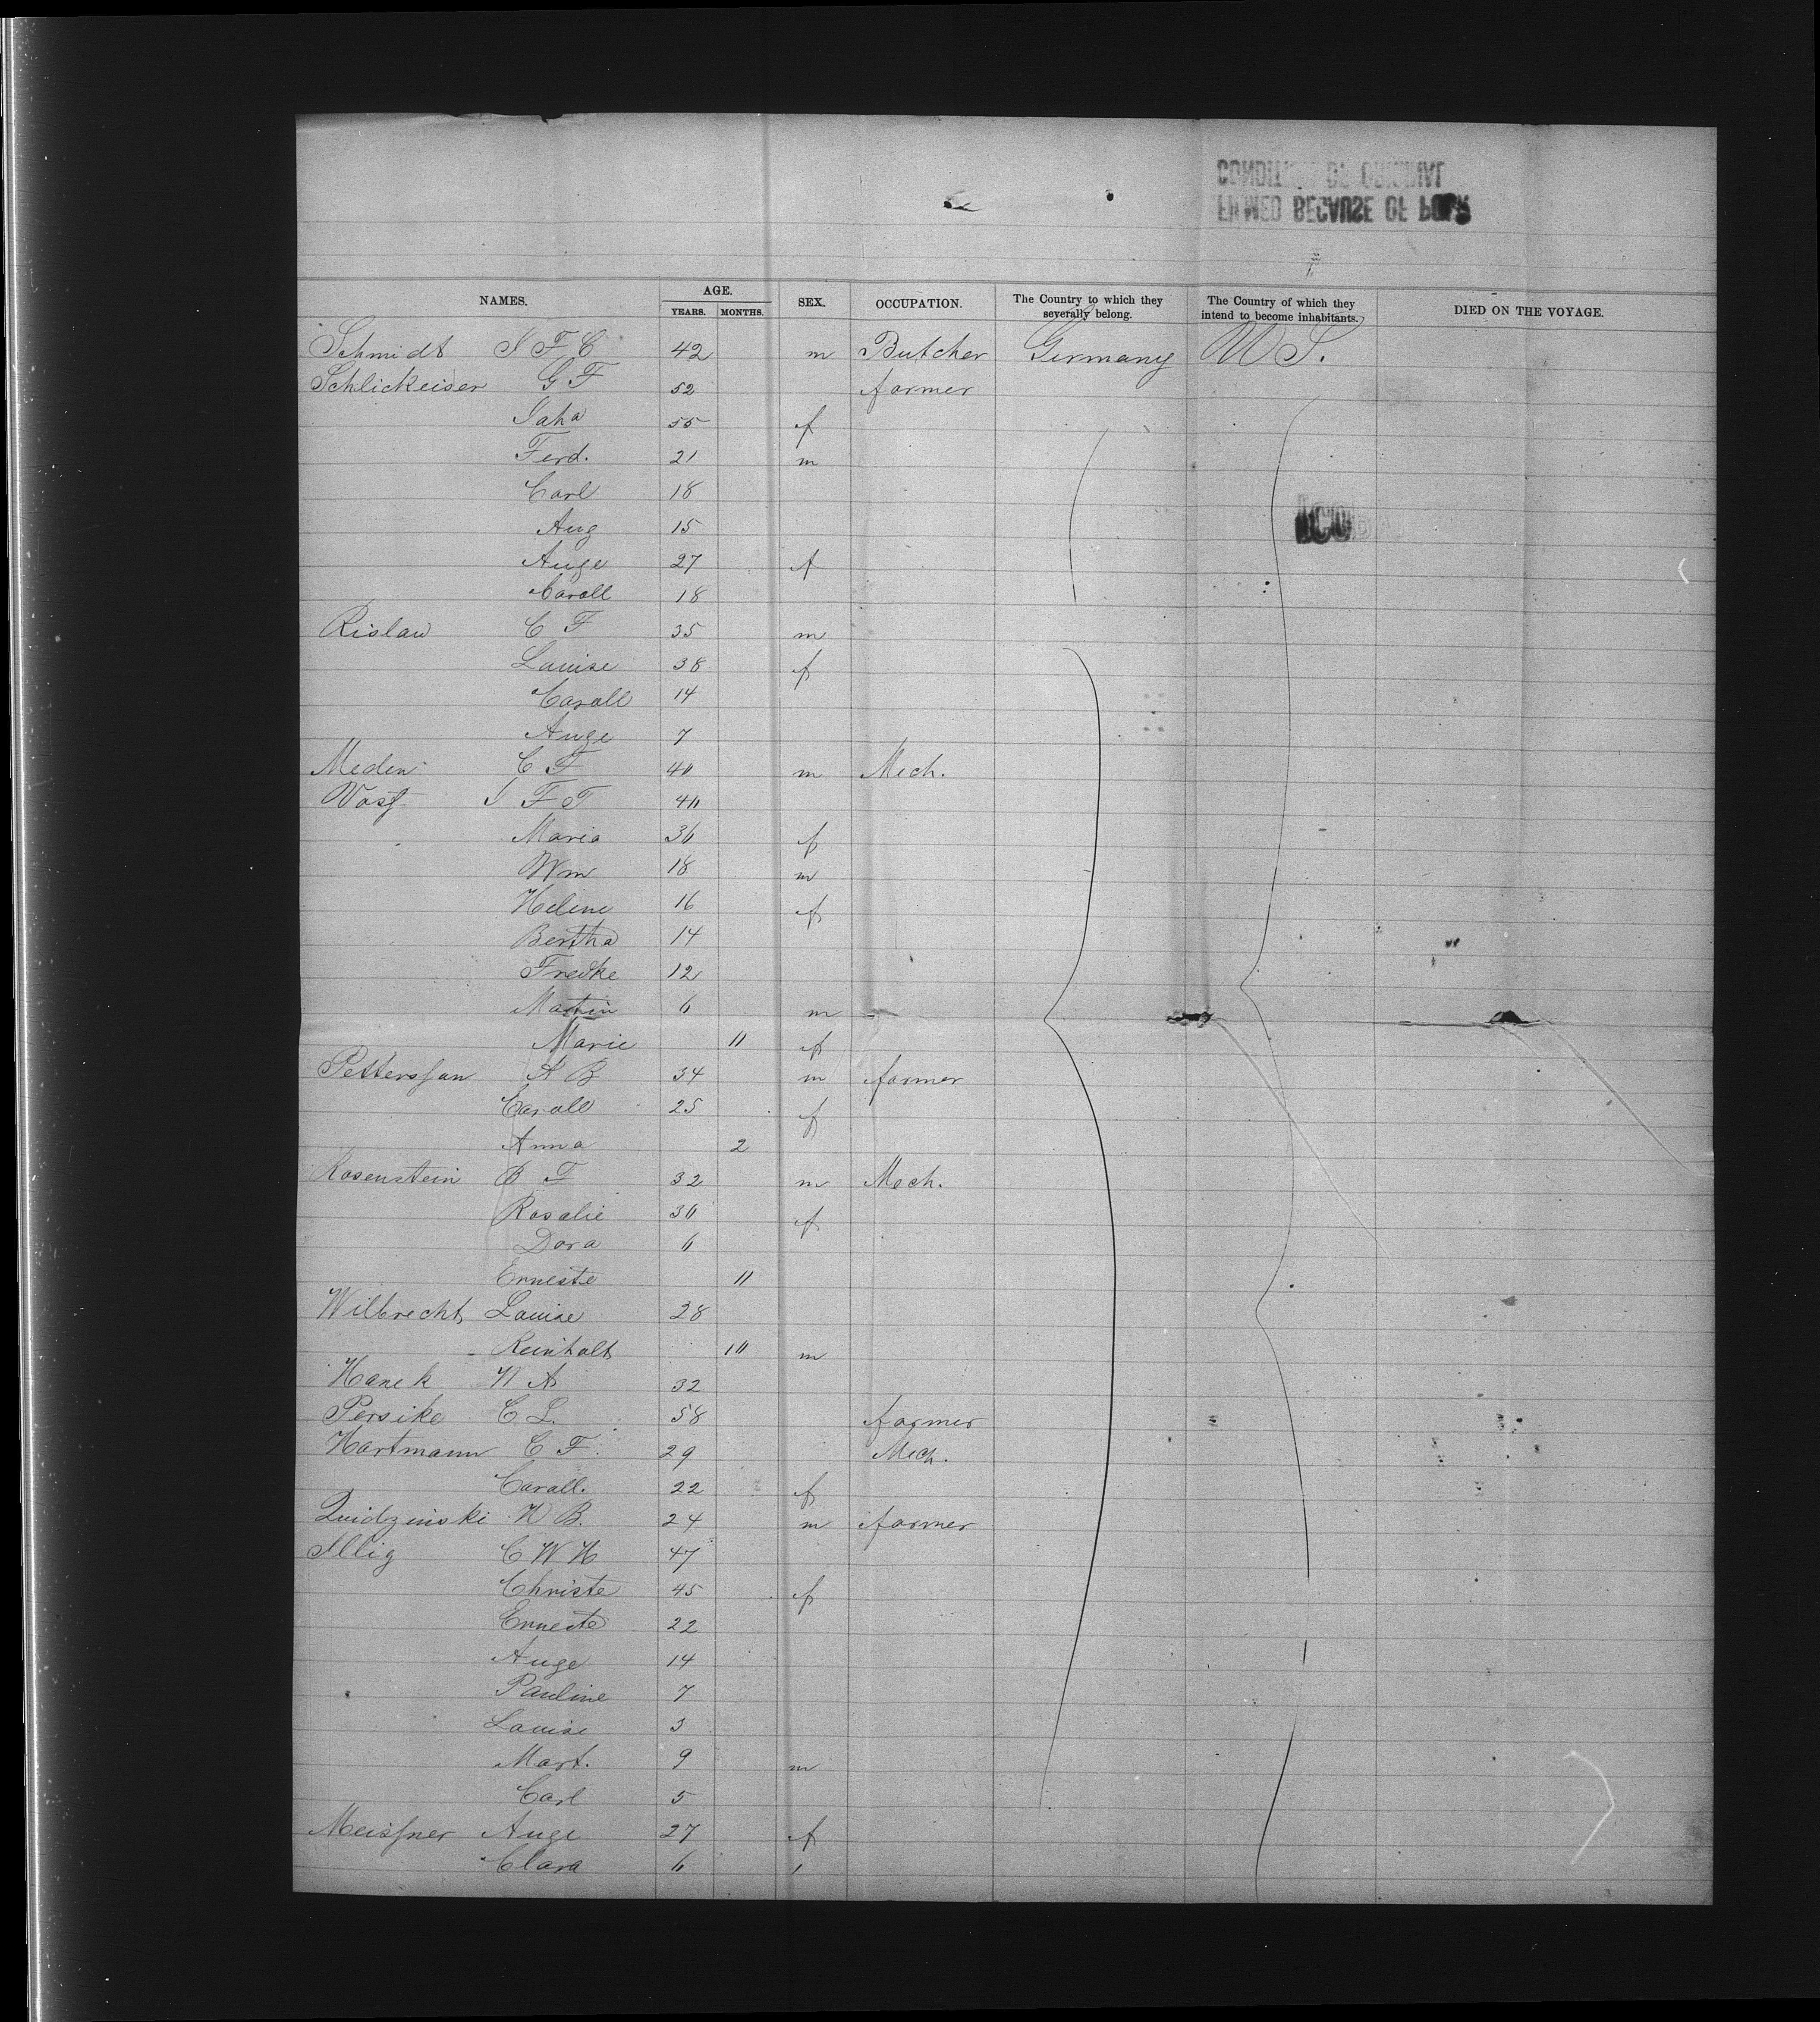 NAMES. AGE. YEARS. MONTHS. SEX. OCCUPATION. The Country to which they severally belong. The Country of which they intend to become inhabitants. DIED ON THE VOYAGE.
Schmidt J F C 42 m Butcher Germany U S.
Schlickeiser G F 52 farmer
55 f
Ferd. 21 m
Carl 18
Aug 15
Auge 27 f
Caroll 18
Rislaw C F 35 m
Louise 38 f
Caroll 14
Auge 7
Meden C F 40 m Mech.
J F T 40
Maria 30 f
Wm 18 m
Helene 16 f
Bertha 14
Fredke 12
Martin 6 m
Marie 11 f
Petterssan A B 34 m farmer
Caroll 25 f
Anna 2
Rosenstein B F 32 m Mech.
Rosalie 30 f
Dora 6
Erneste 11
Wilbrecht Louise 28
Reinholt 10 m
Hanek W A 32
Persike C L. 58 farmer
Hartmann C F. 29 Mech.
Caroll. 22 f
Quidzinski W B. 24 m farmer
Illig C W H 47
Christe 45 f
Erneste 22
Auge 14
Pauline 7
Louise 3
Mart. 9 m
Carl 5
Meissner Auge 27 f
Clara 6